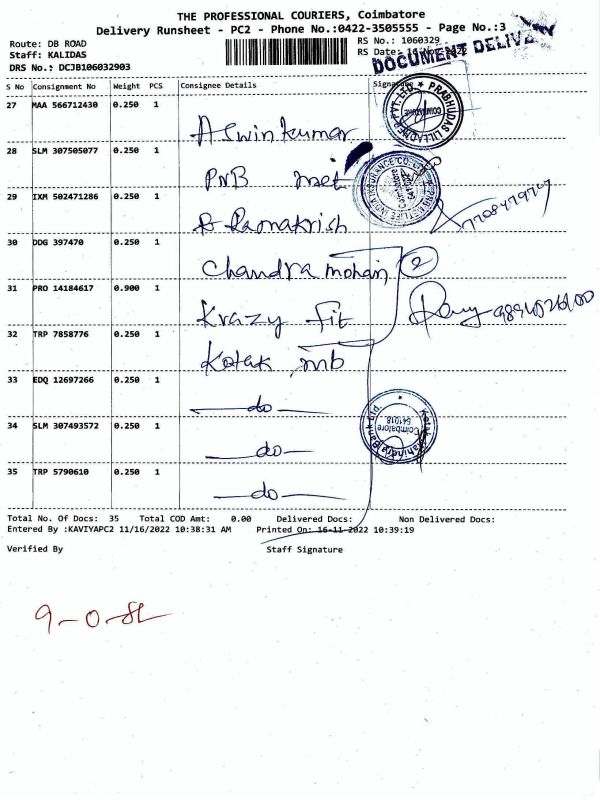 THE PROFESSIONAL COURIERS, Coimbatore
Delivery Runsheet - PC2 - Phone No.:0422-3505555 - Page No.:3
Route: DB ROAD RS No.: 1060329
Staff: KALIDAS RS Date: 16 Nov 2022
DOCUMENT DELIVERY
DRS No.: DCJB106032903
S No Consignment No Weight PCS Consignee Details Signature
27 MAA 566712430 0.250 1
Aswin kumar
PRABHUDAS LILLADHER PVT. LTD.
COIMBATORE
28 SLM 307505077 0.250 1
PNB met
29 IXM 502471286 0.250 1
PNB METLIFE INDIA INSURANCE CO. LTD
Coimbatore
R Ramakrish
30 DDG 397470 0.250 1
Chandra mohan 2
31 PRO 14184617 0.900 1
Krazy fit
32 TRP 7858776 0.250 1
Kotak mb
33 EDQ 12697266 0.250 1
do
Kotak Mahindra Bank Ltd
Coimbatore
641018
34 SLM 307493572 0.250 1
do
35 TRP 5790610 0.250 1
do
Total No. Of Docs: 35 Total COD Amt: 0.00 Delivered Docs: Non Delivered Docs:
Entered By :KAVIYAPC2 11/16/2022 10:38:31 AM Printed On: 16-11-2022 10:39:19
Verified By Staff Signature